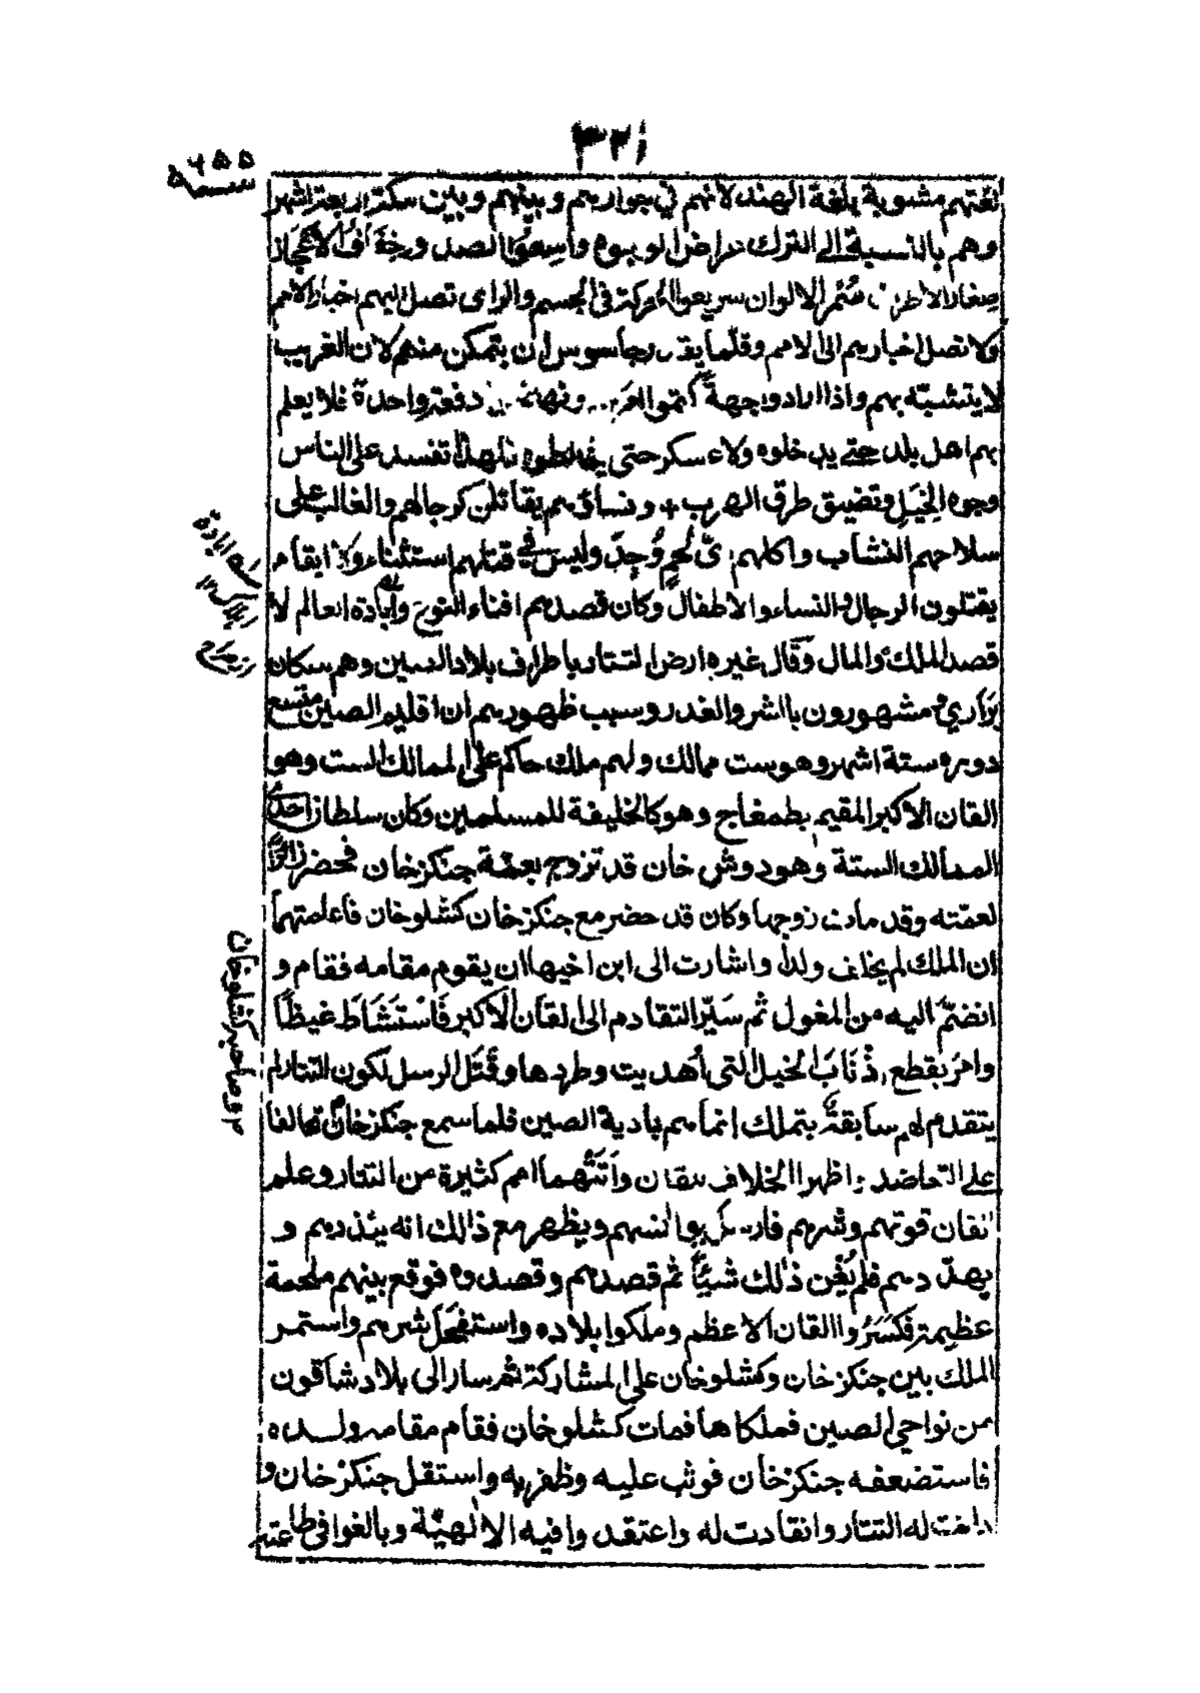 ٣٢١
٦٥٥
لغتهم مشوبة بلغة الهند لانهم في جوارهم وبينهم وبين مكة اربعة اشهر
وهم بالنسبة الى الترك عراض الوجوه واسعوا الصدر خفاف الاعجاز
صغار الاطراف سُمر الالوان سريعو الحركة في الجسم والراى تصل اليهم اخبار الامم
ولا تصل اخبارهم الى الامم وقلّما يقدر جاسوس ان يتمكن منهم لان الغريب
لا يتشبّه بهم واذا ارادوا جهةً كتموا امرهم ونهضوا دفعة واحدة فلا يعلم
بهم اهل بلد حتى يدخلوه ولا عسكر حتى يخالطوه فلهذا تفسد على الناس
وجوه الحِيَل وتضيق طرق الهرب ونساؤهم يقاتلن كرجالهم والغالب على
سلاحهم النشاب واكلهم اىّ لحمٍ وُجِدَ وليس في قتلهم استثناء ولا ابقاء
يقتلون الرجال والنساء والاطفال وكان قصدهم افناء النوع وابادة العالم لا
قصد الملك والمال وقال غيره ارض التتار باطراف بلاد الصين وهم سكان
بَرَاريّ مشهورون بالشر والغدر وسبب ظهورهم ان اقليم الصين متسع
دوره ستة اشهر وهو ست ممالك ولهم ملك حاكم على الممالك الست وهو
القان الاكبر المقيم بطمغاج وهو كالخليفة للمسلمين وكان سلطان احدى
الممالك الستة وهو دوش خان قد تزوج بعمّة جنكزخان فحضر زائرًا
لعمّته وقد مات زوجها وكان قد حضر مع جنكزخان كشلوخان فاعلمتهما
ان الملك لم يخلف ولدا واشارت الى ابن اخيها ان يقوم مقامه فقام و
انضمّ اليه من المغول ثم سَيّر التقادم الى القان الاكبر فَاسْتَشَاطَ غيظًا
وامر بقطع اذْنَابَ الخيل التي أُهديت وطردها وقَتَل الرسل لكون التتار لم
يتقدم لهم سابقةٌ بتملك انما هم بادية الصين فلما سمع جنكزخان تحالفا
على التعاضد واظهرا الخلاف للقان وأتتهما امم كثيرة من التتار وعلم
القان قوتهم وشرهم فارسل يؤانسهم ويظهر مع ذالك انه ينذرهم و
يهدّدهم فلم يُغْنِ ذٰلك شيئًا ثم قصدهم وقصدوه فوقع بينهم ملحمة
عظيمة فكَسَرُوا القان الاعظم وملكوا بلاده واستفحل شرهم واستمر
الملك بين جنكزخان وكشلوخان على المشاركة ثم سارا الى بلاد شاقون
من نواحي الصين فملكاها فمات كشلوخان فقام مقامه ولده
فاستضعفه جنكزخان فوثب عليه وظفر به واستقل جنكزخان و
دانت له التتار وانقادت له واعتقدوا فيه الالٰهيّة وبالغوا في طاعته